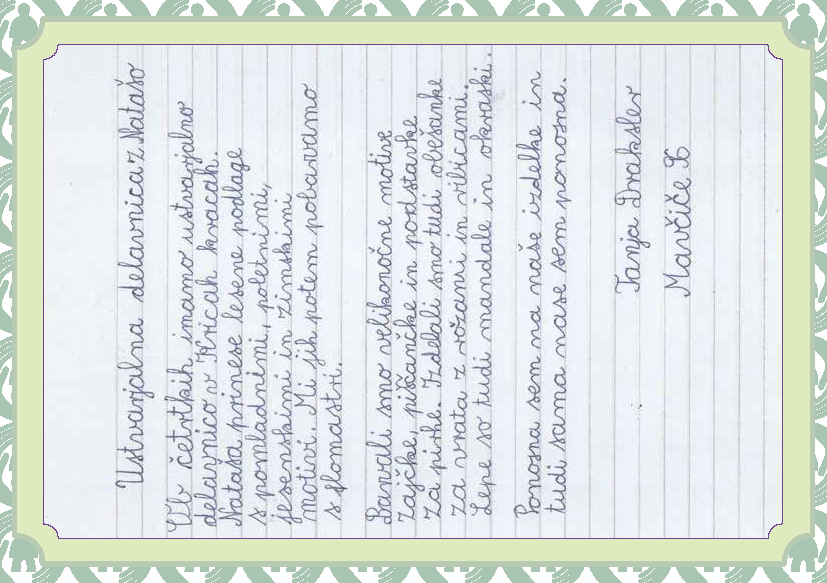 Ustvarjalna delavnica z Natašo
Ob četrtkih imamo ustvarjalno
delavnico v Kricah kracah.
Nataša prinese lesene podlage
s pomladnimi, poletnimi,
jesenskimi in zimskimi
motivi. Mi jih potem pobarvamo
s flomastri.
Barvali smo velikonočne motive
zajčke, piščančke in podstavke
za pirhe. Izdelali smo tudi obešanke
za vrata z rožami in vilicami.
Lepe so tudi mandale in okraski.
Ponosna sem na naše izdelke in
tudi sama nase sem ponosna.
Tanja Draksler
Mavčiče